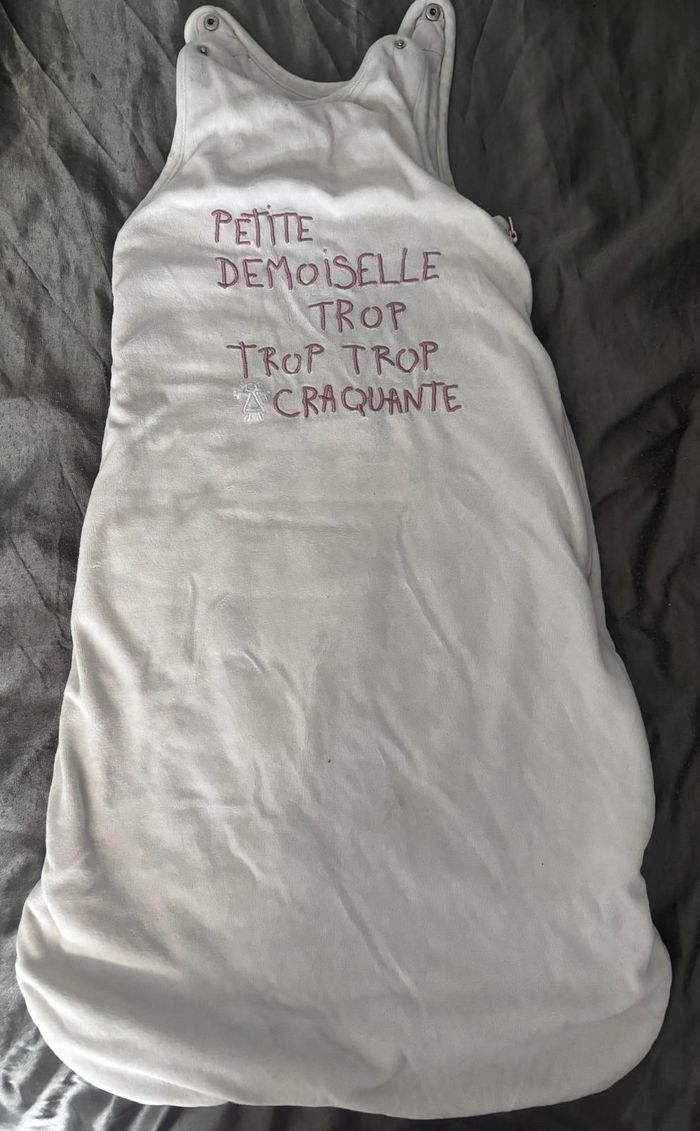 PETITE
DEMOISELLE
TROP
TROP TROP
CRAQUANTE